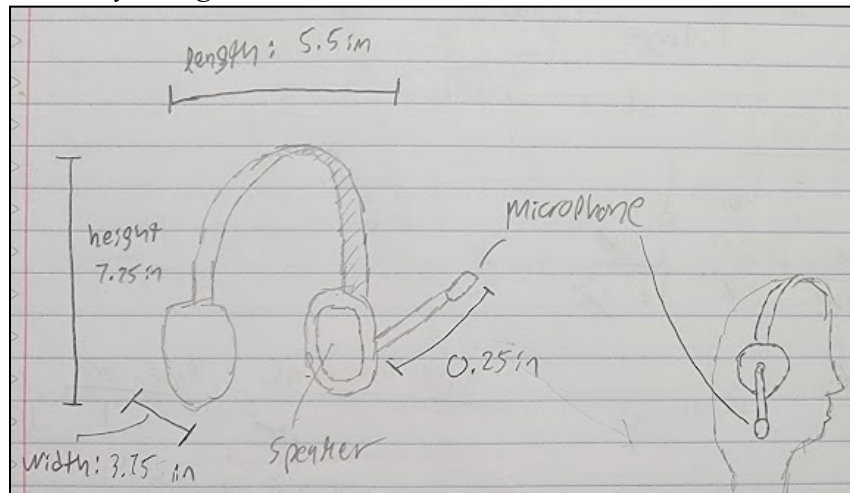 length: 5.5in
height
7.75in
microphone
0.25in
width: 3.75 in
Speaker